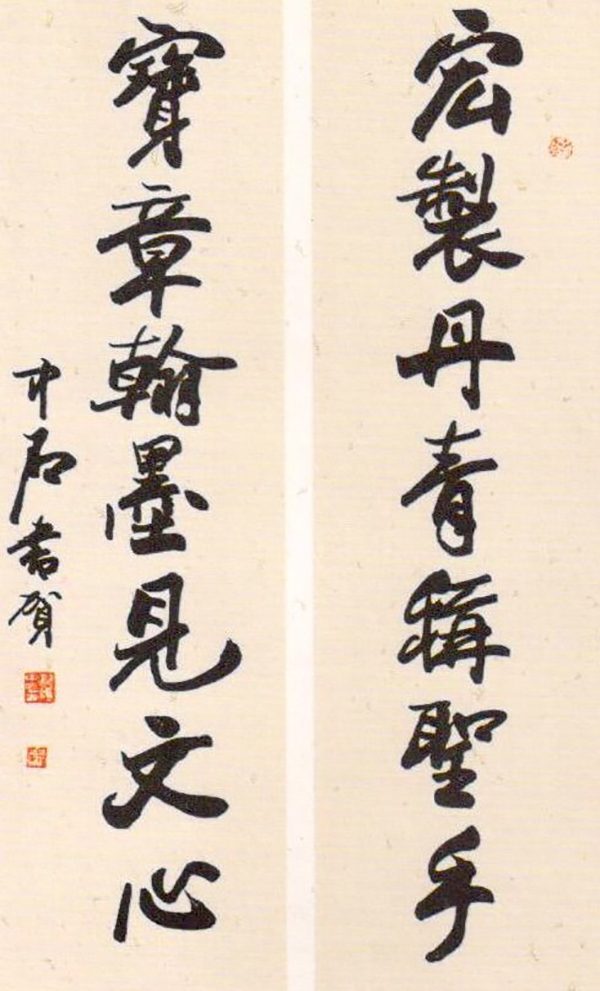 宏製丹青稱聖手
寶章翰墨見文心
中石書賀